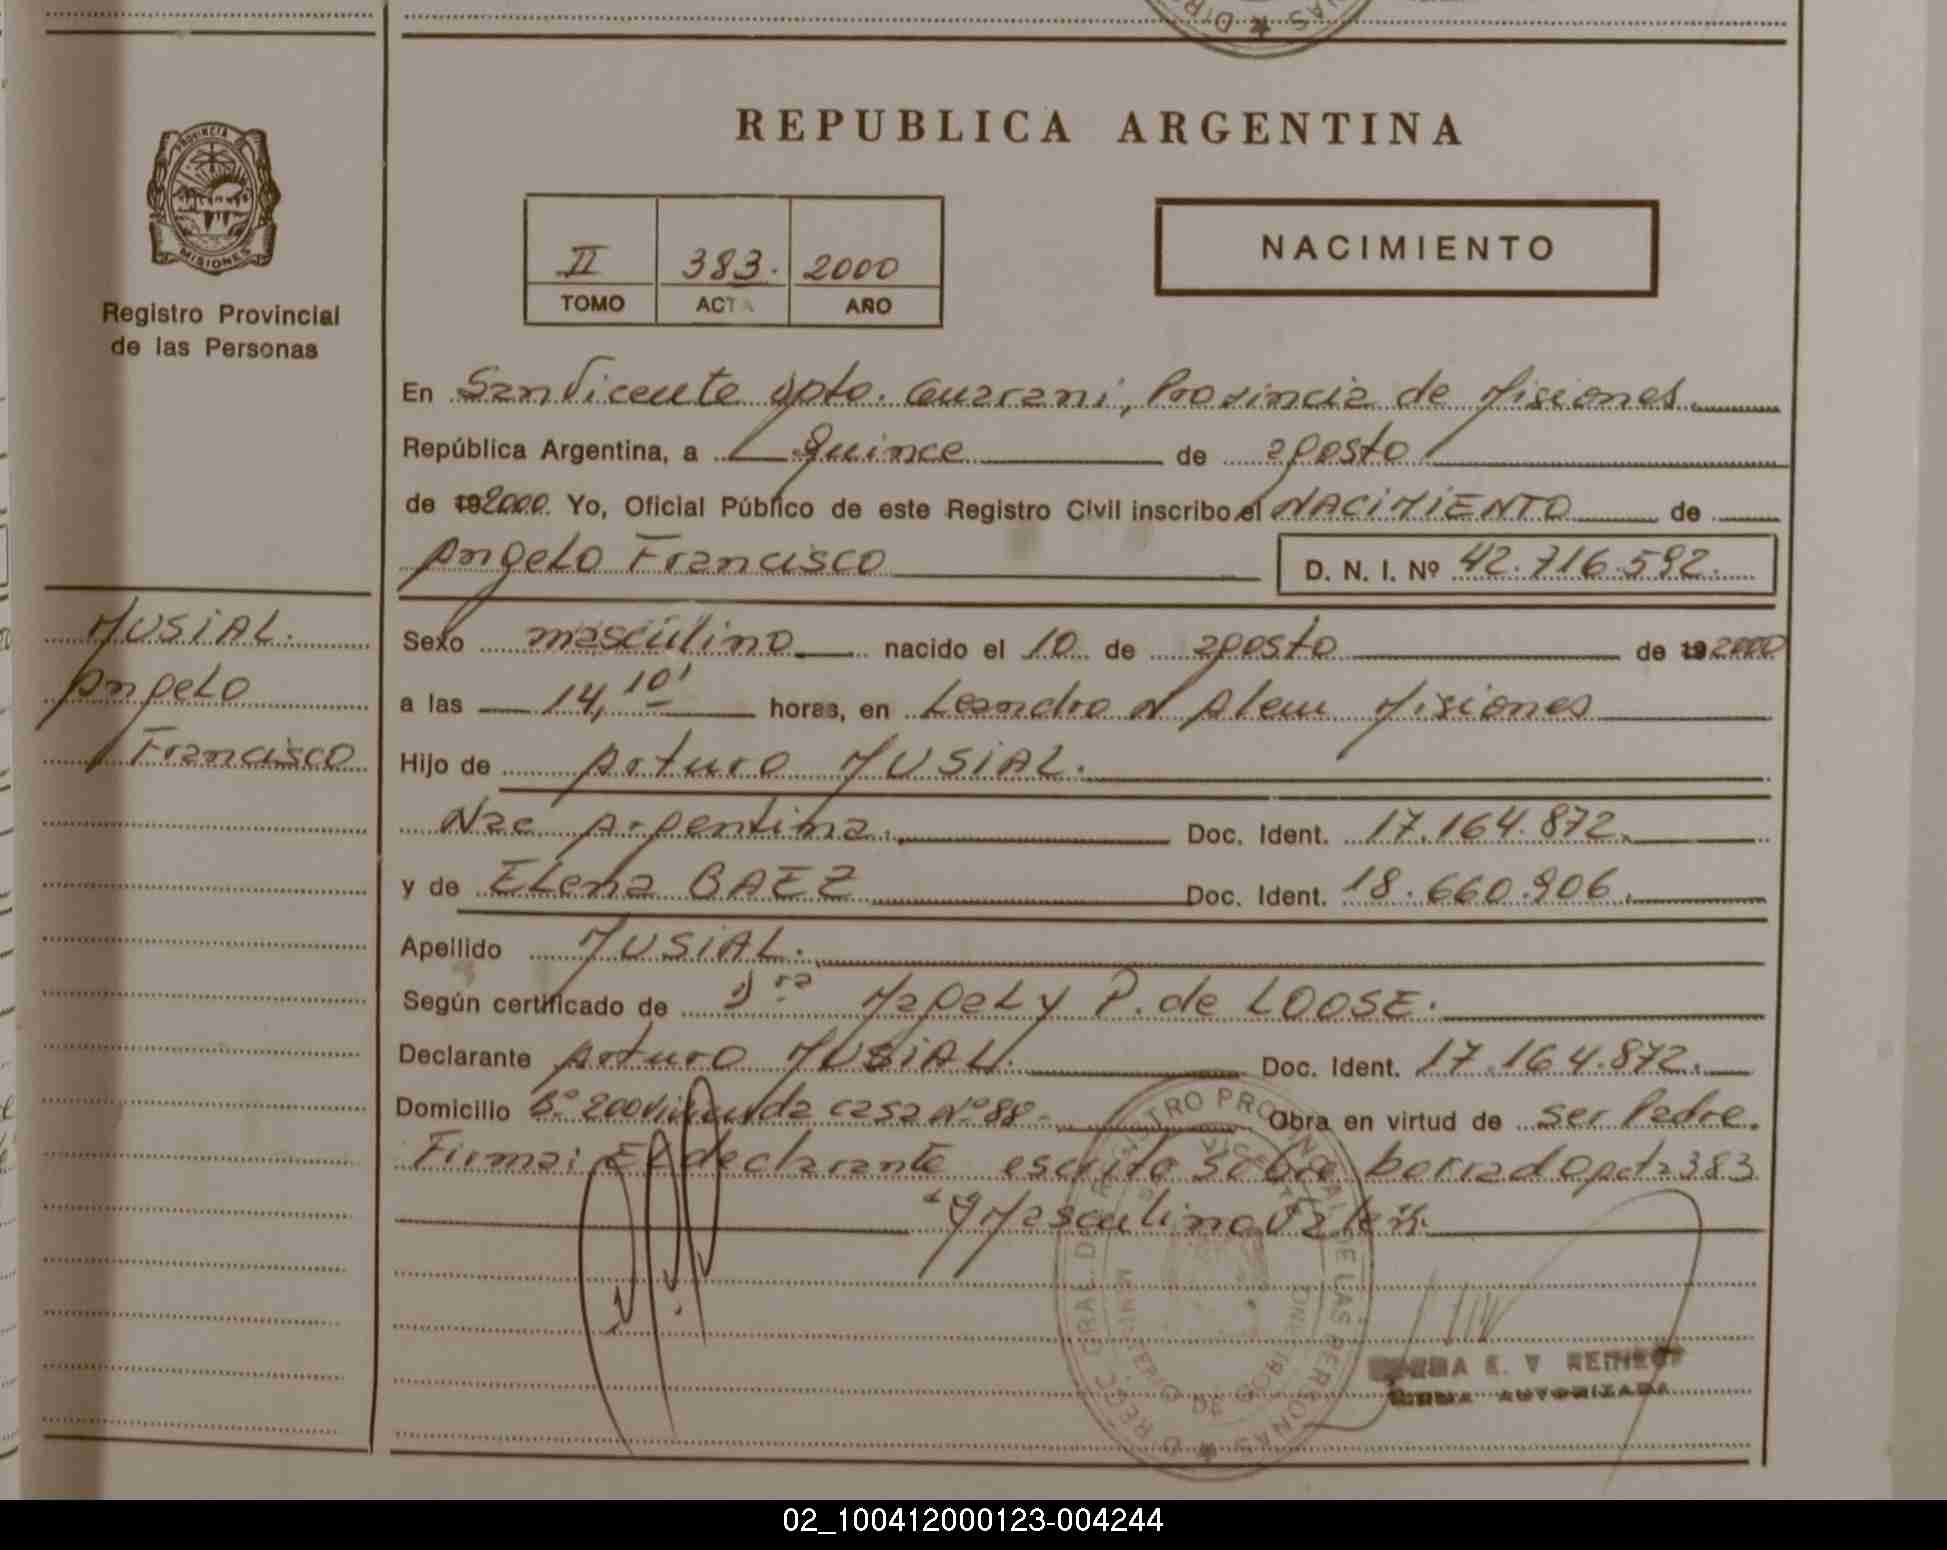 REPUBLICA ARGENTINA
PROVINCIA
MISIONES
Registro Provincial
de las Personas
II 383. 2000
TOMO ACTA AÑO
NACIMIENTO
En San Vicente Dpto. Guarani, Provincia de Misiones.
República Argentina, a Quince de agosto
de 192000. Yo, Oficial Público de este Registro Civil inscribo el NACIMIENTO de
Angelo Francisco D. N. I. Nº 42.716.592.
MUSIAL.
Angelo
Francisco
Sexo masculino nacido el 10 de agosto de 192000
a las 14,10' horas, en Leandro N Alem Misiones
Hijo de Arturo MUSIAL.
Nac Argentina. Doc. Ident. 17.164.872.
y de Elena BAEZ Doc. Ident. 18.660.906.
Apellido MUSIAL.
Según certificado de Dra Magaly P. de LOOSE.
Declarante Arturo MUSIAL. Doc. Ident. 17.164.872.
Domicilio Bº 200 Vivienda casa Nº 88- Obra en virtud de ser Padre.
Firma: El declarante escrito sobre borrado acta 383
"Y Masculino Valen.
REGISTRO PROVINCIAL DE LAS PERSONAS
E. V REINECK
FIRMA AUTORIZADA
02_100412000123-004244